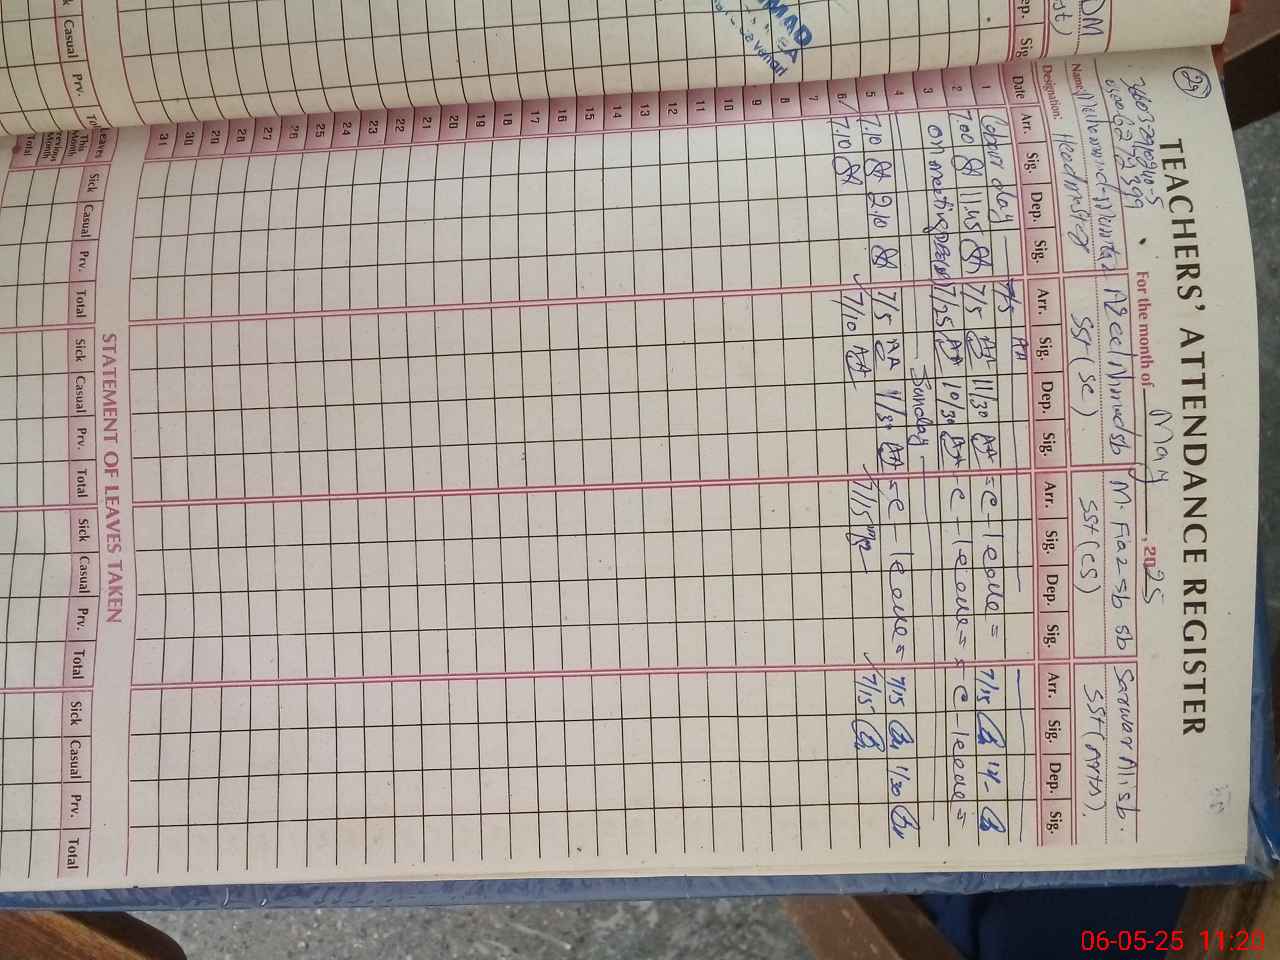 TEACHERS' ATTENDANCE REGISTER
For the month of May, 2025
29
Name: Azeel Ahmed sb M. Fiaz sb sb Sarwar Ali sb.
Designation: Headmaster SST (Sc) SST (CS) SST (Arts).
Date Arr. Sig. Dep. Sig. Arr. Sig. Dep. Sig. Arr. Sig. Dep. Sig. Arr. Sig. Dep. Sig.
1 Labour day — 7/5 AA
2 7.00 11.45 7/5 AA 11/30 AA = C - leave = 7/15
3 on meeting 7/25 AA 10/30 AA = C - leave = = C - leave =
4 — Sunday —
5 7.10 2.10 7/5 AA 1/30 AA = C - leave = 7/15 1/30
6 7.10 7/10 AA 7/15 7/15
7
8
9
10
11
12
13
14
15
16
17
18
19
20
21
22
23
24
25
26
27
28
29
30
31
STATEMENT OF LEAVES TAKEN
Leaves Sick Casual Prv. Total Sick Casual Prv. Total Sick Casual Prv. Total Sick Casual Prv. Total
This Month
Previous Month
Total
Casual Prv.
Sig
06-05-25 11:20